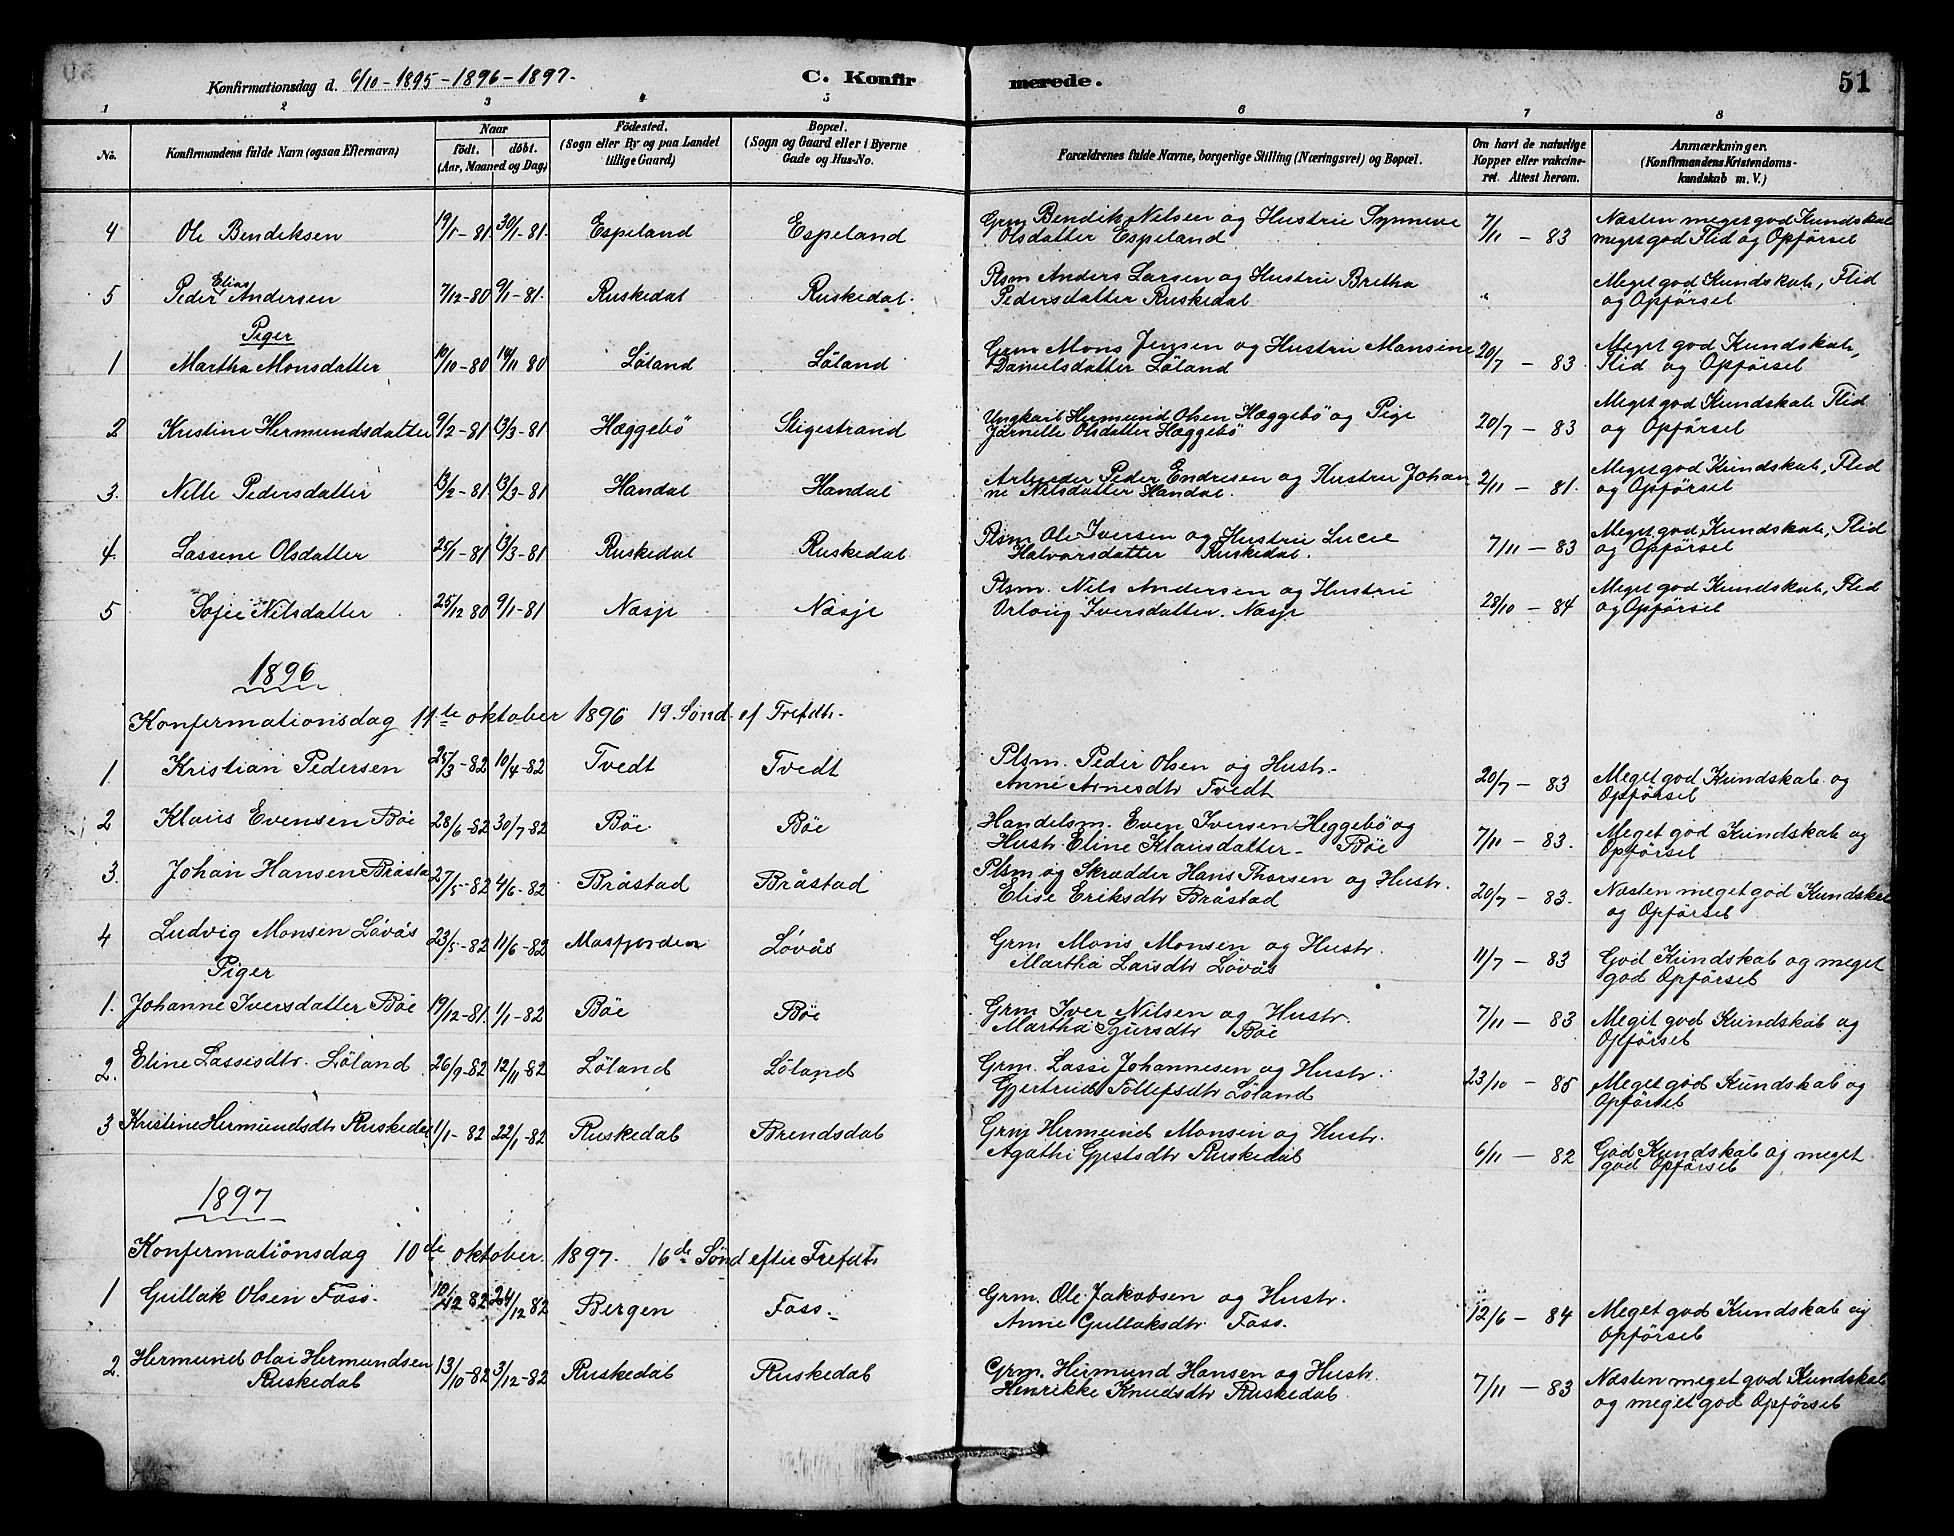 Konfirmationsdag d. 6/10 - 1895 - 1896 - 1897.
C. Konfirmerede.
51
1 2 3 4 5 6 7 8
No.
Konfirmandens fulde Navn (ogsaa Efternavn)
Naar
født. døbt.
(Aar, Maaned og Dag)
Fødested.
(Sogn eller By og paa Landet
tillige Gaard)
Bopæl.
(Sogn og Gaard eller i Byerne
Gade og Hus-No.
Forældrenes fulde Navne, borgerlige Stilling (Næringsvei) og Bopæl.
Om havt de naturlige
Kopper eller vakcine-
ret. Attest herom.
Anmærkninger.
(Konfirmandens Kristendoms-
kundskab m. V.)
4 Ole Bendiksen 19/1 - 81 30/1 - 81. Espeland Espeland Grm Bendik Nilsen og Hustru Synneve 7/11 - 83 Næsten meget god Kundskab
Olsdatter Espeland meget god Flid og Opførsel
Elias
5 Peder Andersen 7/12 - 80 9/1 - 81. Ruskedal Ruskedal. Plsm Anders Larsen og Hustru Bretha " Meget god Kundskab, Flid
Pedersdatter Ruskedal og Opførsel
Piger
1 Martha Monsdatter 10/10 - 80 14/11 80 Løland Løland Grm Mons Jensen og Hustru Mansine 20/7 - 83. Meget god Kundskab,
Danielsdatter Løland Flid og Opførsel
2 Kristine Hermundsdatter 9/2 - 81 13/3 - 81 Hæggebø Stigestrand Ungkarl Hermund Olsen Hæggebø og Pige 20/7 - 83 Meget god Kundskab Flid
Jørnelle Olsdatter Hæggebø og Opførsel
3. Nille Pedersdatter 13/2 - 81 13/3 - 81 Handal Handal Arbeider Peder Endresen og Hustru Johan 2/11 - 81. Meget god Kundskab, Flid
ne Nilsdatter Handal. og Opførsel
4. Lassene Olsdatter 25/1 - 81 13/3 - 81 Ruskedal Ruskedal Plsm Ole Iversen og Hustru Lucie 7/11 - 83 Meget god Kundskab, Flid
Halvorsdatter Ruskedal. og Opførsel
5 Sofie Nilsdatter 25/12 80 9/1 - 81 Næsje Næsje Plsm. Nils Andersen og Hustru 28/10 - 84 Meget god Kundskab, Flid
Orloug Iversdatter. Næsje og Opførsel
1896
Konfirmationsdag 11te oktober 1896 19. Sønd. ef Trefdtr.
1. Kristian Pedersen 25/3 - 82 10/4 - 82 Tvedt Tvedt Plsm. Peder Olsen og Hustr. 20/7 - 83 Meget god Kundskab og
Anne Arnesdtr Tvedt Opførsel
2 Klaus Evensen Bøe 28/6 - 82 30/7 - 82 Bøe Bøe Handelsm. Even Iversen Heggebø og 7/11 - 83. Meget god Kundskab og
Hustr. Eline Klausdatter - Bøe Opførsel
3. Johan Hansen Bråstad 27/5 - 82 4/6 - 82 Bråstad Bråstad Plsm og Skrædder Hans Thorsen og Hustr. 20/7 - 83. Næsten meget god Kundskab
Elise Eriksdtr Bråstad og Opførsel
4 Ludvig Monsen Løvås 23/5 - 82 11/6 - 82 Masfjorden Løvås Grm. Mons Monsen og Hustr. 11/7 - 83 God Kundskab og meget
Martha Larsdtr Løvås god Opførsel
Piger
1. Johanne Iversdatter Bøe 19/12 - 81. 1/1 - 82 Bøe Bøe Grm Iver Nilsen og Hustr. 7/11 - 83 Meget god Kundskab og
Martha Sjursdtr Bøe Opførsel
2. Eline Lassesdtr. Løland 26/9 - 82 12/11 - 82 Løland Løland Grm. Lasse Johannesen og Hustr. 23/10 - 85 Meget god Kundskab og
Gjertrud Tollefsdtr Løland Opførsel
3 Kristine Hermundsdtr Ruskedal 1/1 - 82 22/1 - 82 Ruskedal Brendsdal Grm Hermund Monsen og Hustr. 6/11 - 82 God Kundskab og meget
Agathe Gjestsdtr Ruskedal god Opførsel
1897
Konfermationsdag 10de oktober. 1897. 16de Sønd efter Trefdtr
1 Gullak Olsen Foss. 10/12 82 24/12 82 Bergen Foss. Grm. Ole Jakobsen og Hustr. 12/6 - 84 Meget god Kundskab og
Anne Gullaksdtr Foss. Opførsel
2. Hermund Olai Hermundsen 13/10 - 82 3/12 - 82 Ruskedal Ruskedal Grm. Hermund Hansen og Hustr. 7/11 - 83 Næsten meget god Kundskab
Ruskedal Henrikke Knudsdtr Ruskedal. og meget god Opførsel